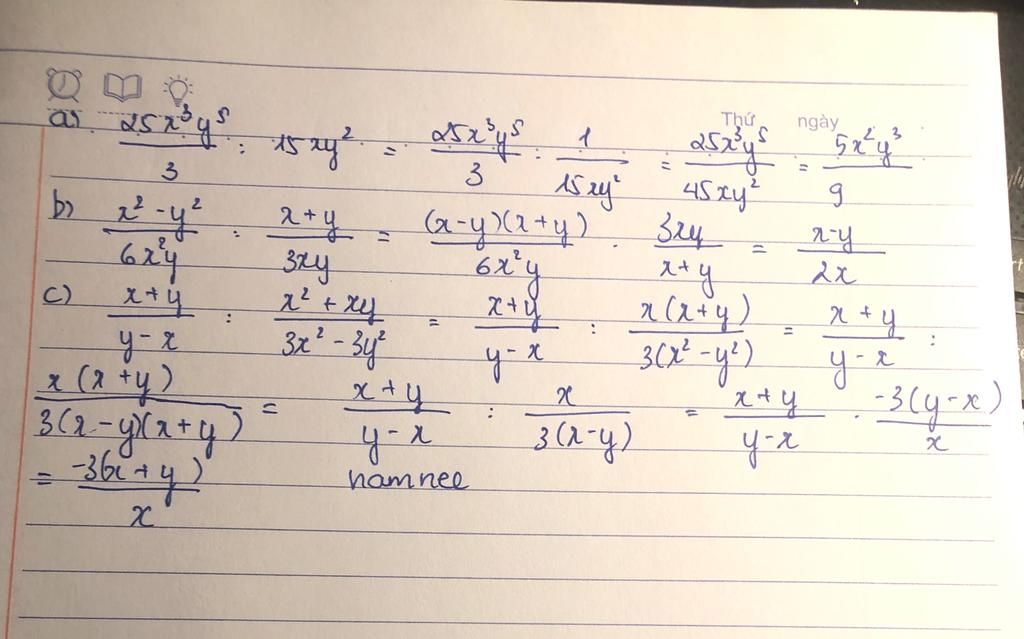 Thứ ngày
a). 25x³y⁵/3 : 15xy² = 25x³y⁵/3 : 1/15xy² = 25x³y⁵/45xy² = 5x²y³/9
b) x²-y²/6x²y : x+y/3xy = (x-y)(x+y)/6x²y . 3xy/x+y = x-y/2x
c) x+y/y-x : x²+xy/3x²-3y² = x+y/y-x : x(x+y)/3(x²-y²) = x+y/y-x :
x(x+y)/3(x-y)(x+y) = x+y/y-x : x/3(x-y) = x+y/y-x . -3(y-x)/x
= -3(x+y)/x namnee